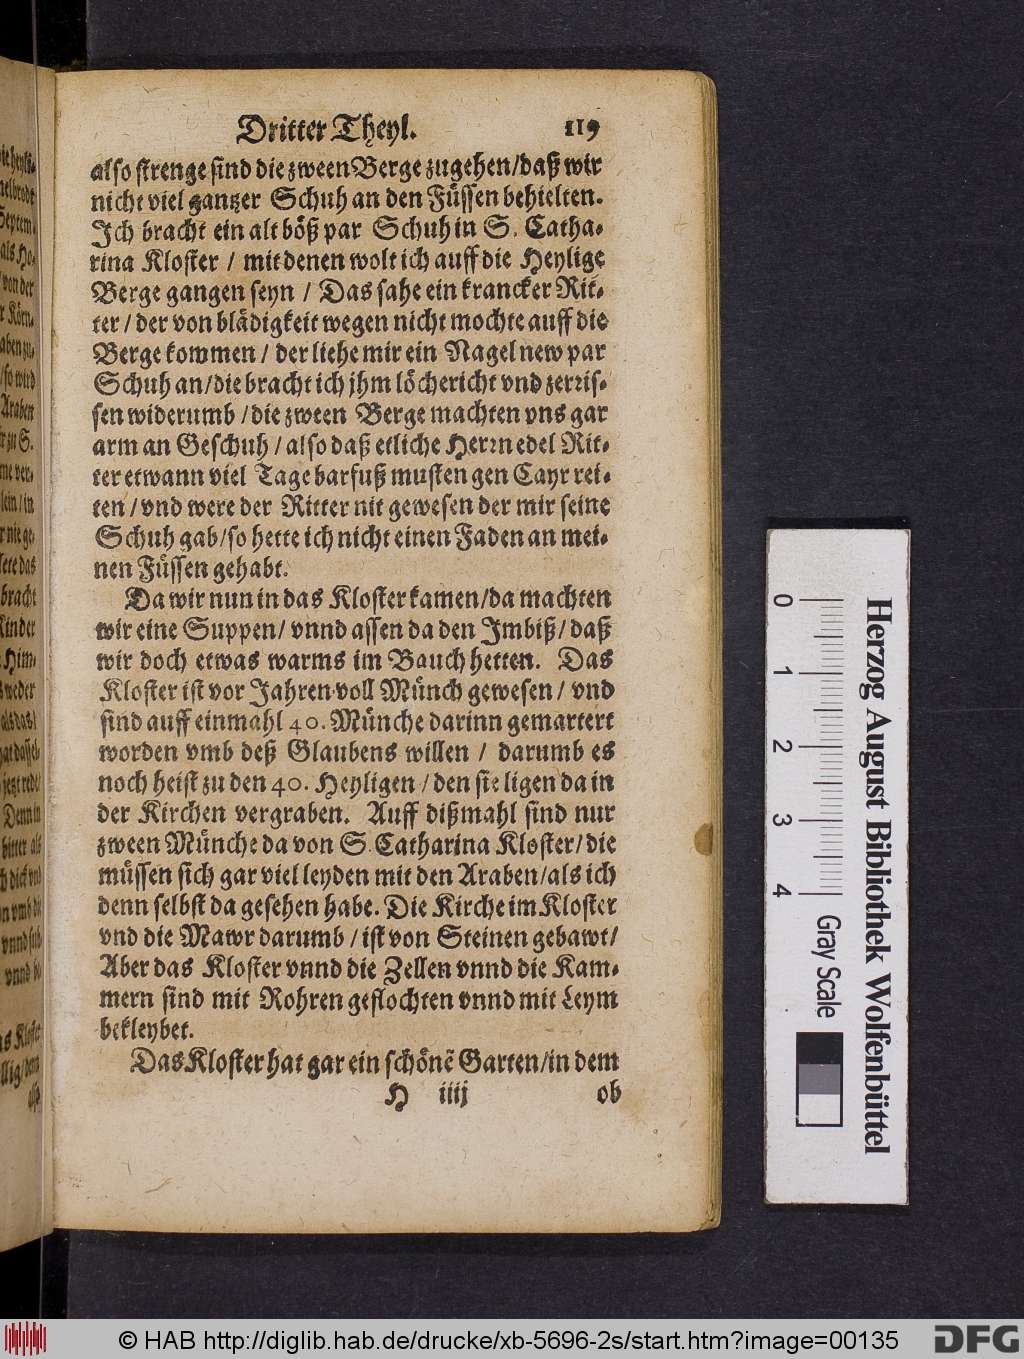 Dritter Theyl. 119
also strenge sind die zween Berge zugehen/daß wir
nicht viel gantzer Schuh an den Füssen behielten.
Ich bracht ein alt böß par Schuh in S. Catha-
rina Kloster / mit denen wolt ich auff die Heylige
Berge gangen seyn / Das sahe ein krancker Rit-
ter / der von blädigkeit wegen nicht mochte auff die
Berge kommen / der liehe mir ein Nagel new par
Schuh an/die bracht ich jhm löchericht vnd zerris-
sen widerumb / die zween Berge machten vns gar
arm an Geschuh / also daß etliche Herrn edel Rit-
ter etwann viel Tage barfuß musten gen Cayr rei-
ten / vnd were der Ritter nit gewesen der mir seine
Schuh gab/so hette ich nicht einen Faden an mei-
nen Füssen gehabt.
Da wir nun in das Kloster kamen/da machten
wir eine Suppen/ vnnd assen da den Imbiß/ daß
wir doch etwas warms im Bauch hetten. Das
Kloster ist vor Jahren voll Münch gewesen / vnd
sind auff einmahl 40. Münche darinn gemartert
worden vmb deß Glaubens willen / darumb es
noch heist zu den 40. Heyligen / den sie ligen da in
der Kirchen vergraben. Auff dißmahl sind nur
zween Münche da von S. Catharina Kloster/ die
müssen sich gar viel leyden mit den Araben/als ich
denn selbst da gesehen habe. Die Kirche im Kloster
vnd die Mawr darumb / ist von Steinen gebawt/
Aber das Kloster vnnd die Zellen vnnd die Kam-
mern sind mit Rohren geflochten vnnd mit Leym
bekleybet.
Das Kloster hat gar ein schönẽ Garten/in dem
H iiij ob
0 1 2 3 4
Gray Scale
Herzog August Bibliothek Wolfenbüttel
© HAB http://diglib.hab.de/drucke/xb-5696-2s/start.htm?image=00135
DFG